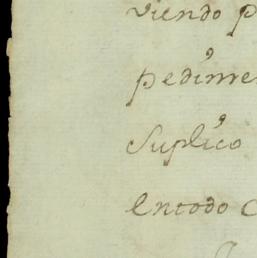 viendo p
pedime
Suplico
entodo c